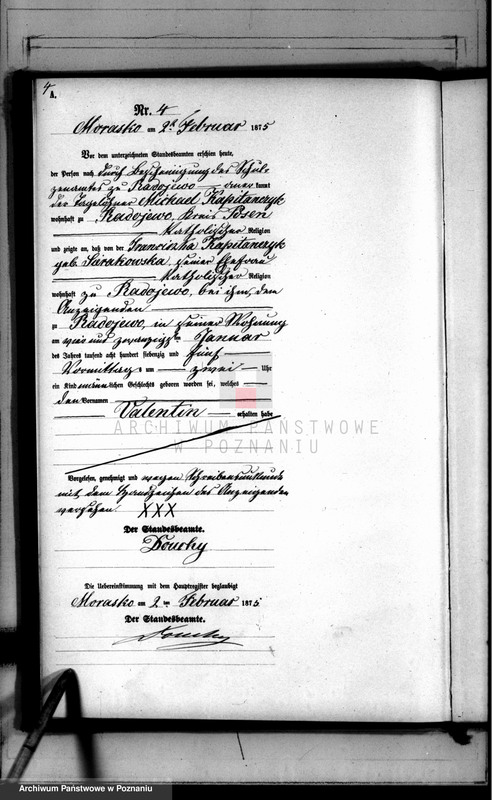 4
A.
Nr. 4
Morasko am 2t Februar 1875
Vor dem unterzeichneten Standesbeamten erschien heute,
der Person nach durch Bescheinigung des Schul-
zenamtes zu Radojewo — anerkannt
der Tagelöhner Michael Kapitanczyk
wohnhaft zu Radojewo, Kreis Posen
katholischer Religion
und zeigte an, daß von der Franciszka Kapitanczyk
geb. Sarakowska, seiner Ehefrau
katholischer Religion
wohnhaft zu Radojewo, bei ihm, dem
Anzeigenden
zu Radojewo, in seiner Wohnung
am ein und zwanzigsten Januar
des Jahres tausend acht hundert siebenzig und fünf
Vormittags um — zwei — Uhr
ein Kind männlichen Geschlechts geboren worden sei, welches
den Vornamen
Valentin — erhalten habe
ARCHIWUM PAŃSTWOWE
W POZNANIU
Vorgelesen, genehmigt und wegen Schreibensunkunde
mit dem Handzeichen des Anzeigenden
versehen. XXX
Der Standesbeamte.
Die Uebereinstimmung mit dem Hauptregister beglaubigt
Morasko am 2ten Februar 1875
Der Standesbeamte.
Archiwum Państwowe w Poznaniu